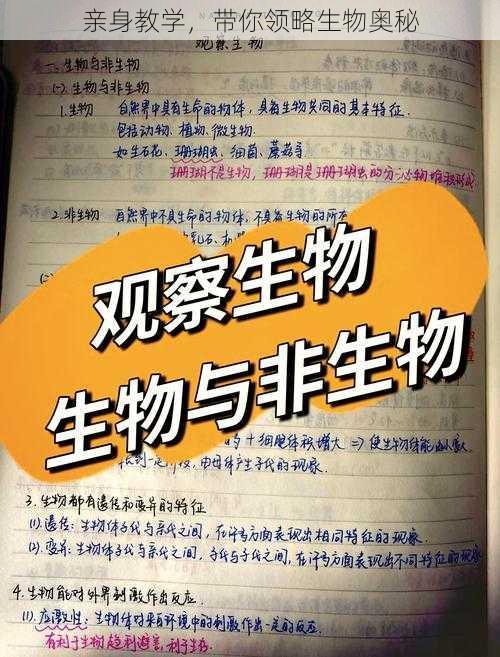 亲身教学，带你领略生物奥秘
观察生物
一、生物与非生物
(一). 生物与非生物
1.生物 自然界中具有生命的物体，具有生物共同的基本特征.
包括动物、植物、微生物.
如生石花、珊瑚虫、细菌、蘑菇等
珊瑚不是生物，珊瑚是珊瑚虫的分泌物堆积形成
2.非生物 自然界中不具生命的物体，不具有生物的所有
乳石、机器
观察生物
生物与非生物
细胞体积增大 => 使生物体能由小变大
由母体产生子代的现象.
3.生物都有遗传和变异的特征
(1).遗传：生物体子代与亲代之间，在许多方面表现出相同特征的现象.
(2).变异：生物体子代与亲代之间，子代与子代之间，在许多方面表现出不同特征的现象
4.生物能对外界刺激作出反应.
(1).应激性：生物体对来自环境中的刺激作出一定的反应.
有利于生物趋利避害，利于生存.